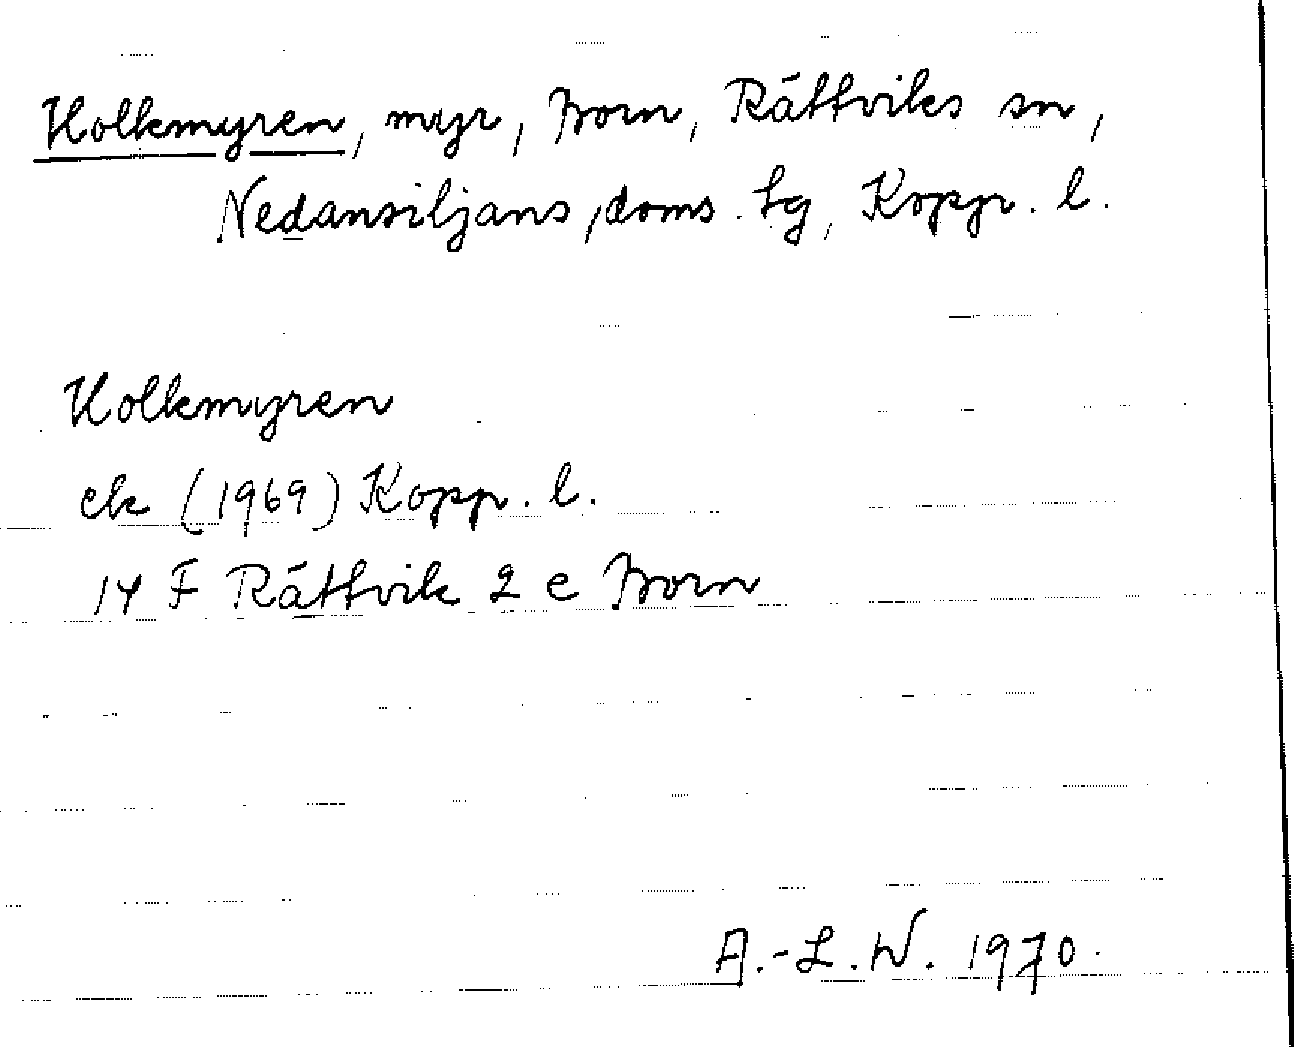 Holkmyren, myr, Born, Rättviks sn,
Nedansiljans doms. tg, Kopp. l.
Holkmyren
ek (1969) Kopp. l.
14 F Rättvik 2 e Born
A.-L.W. 1970.